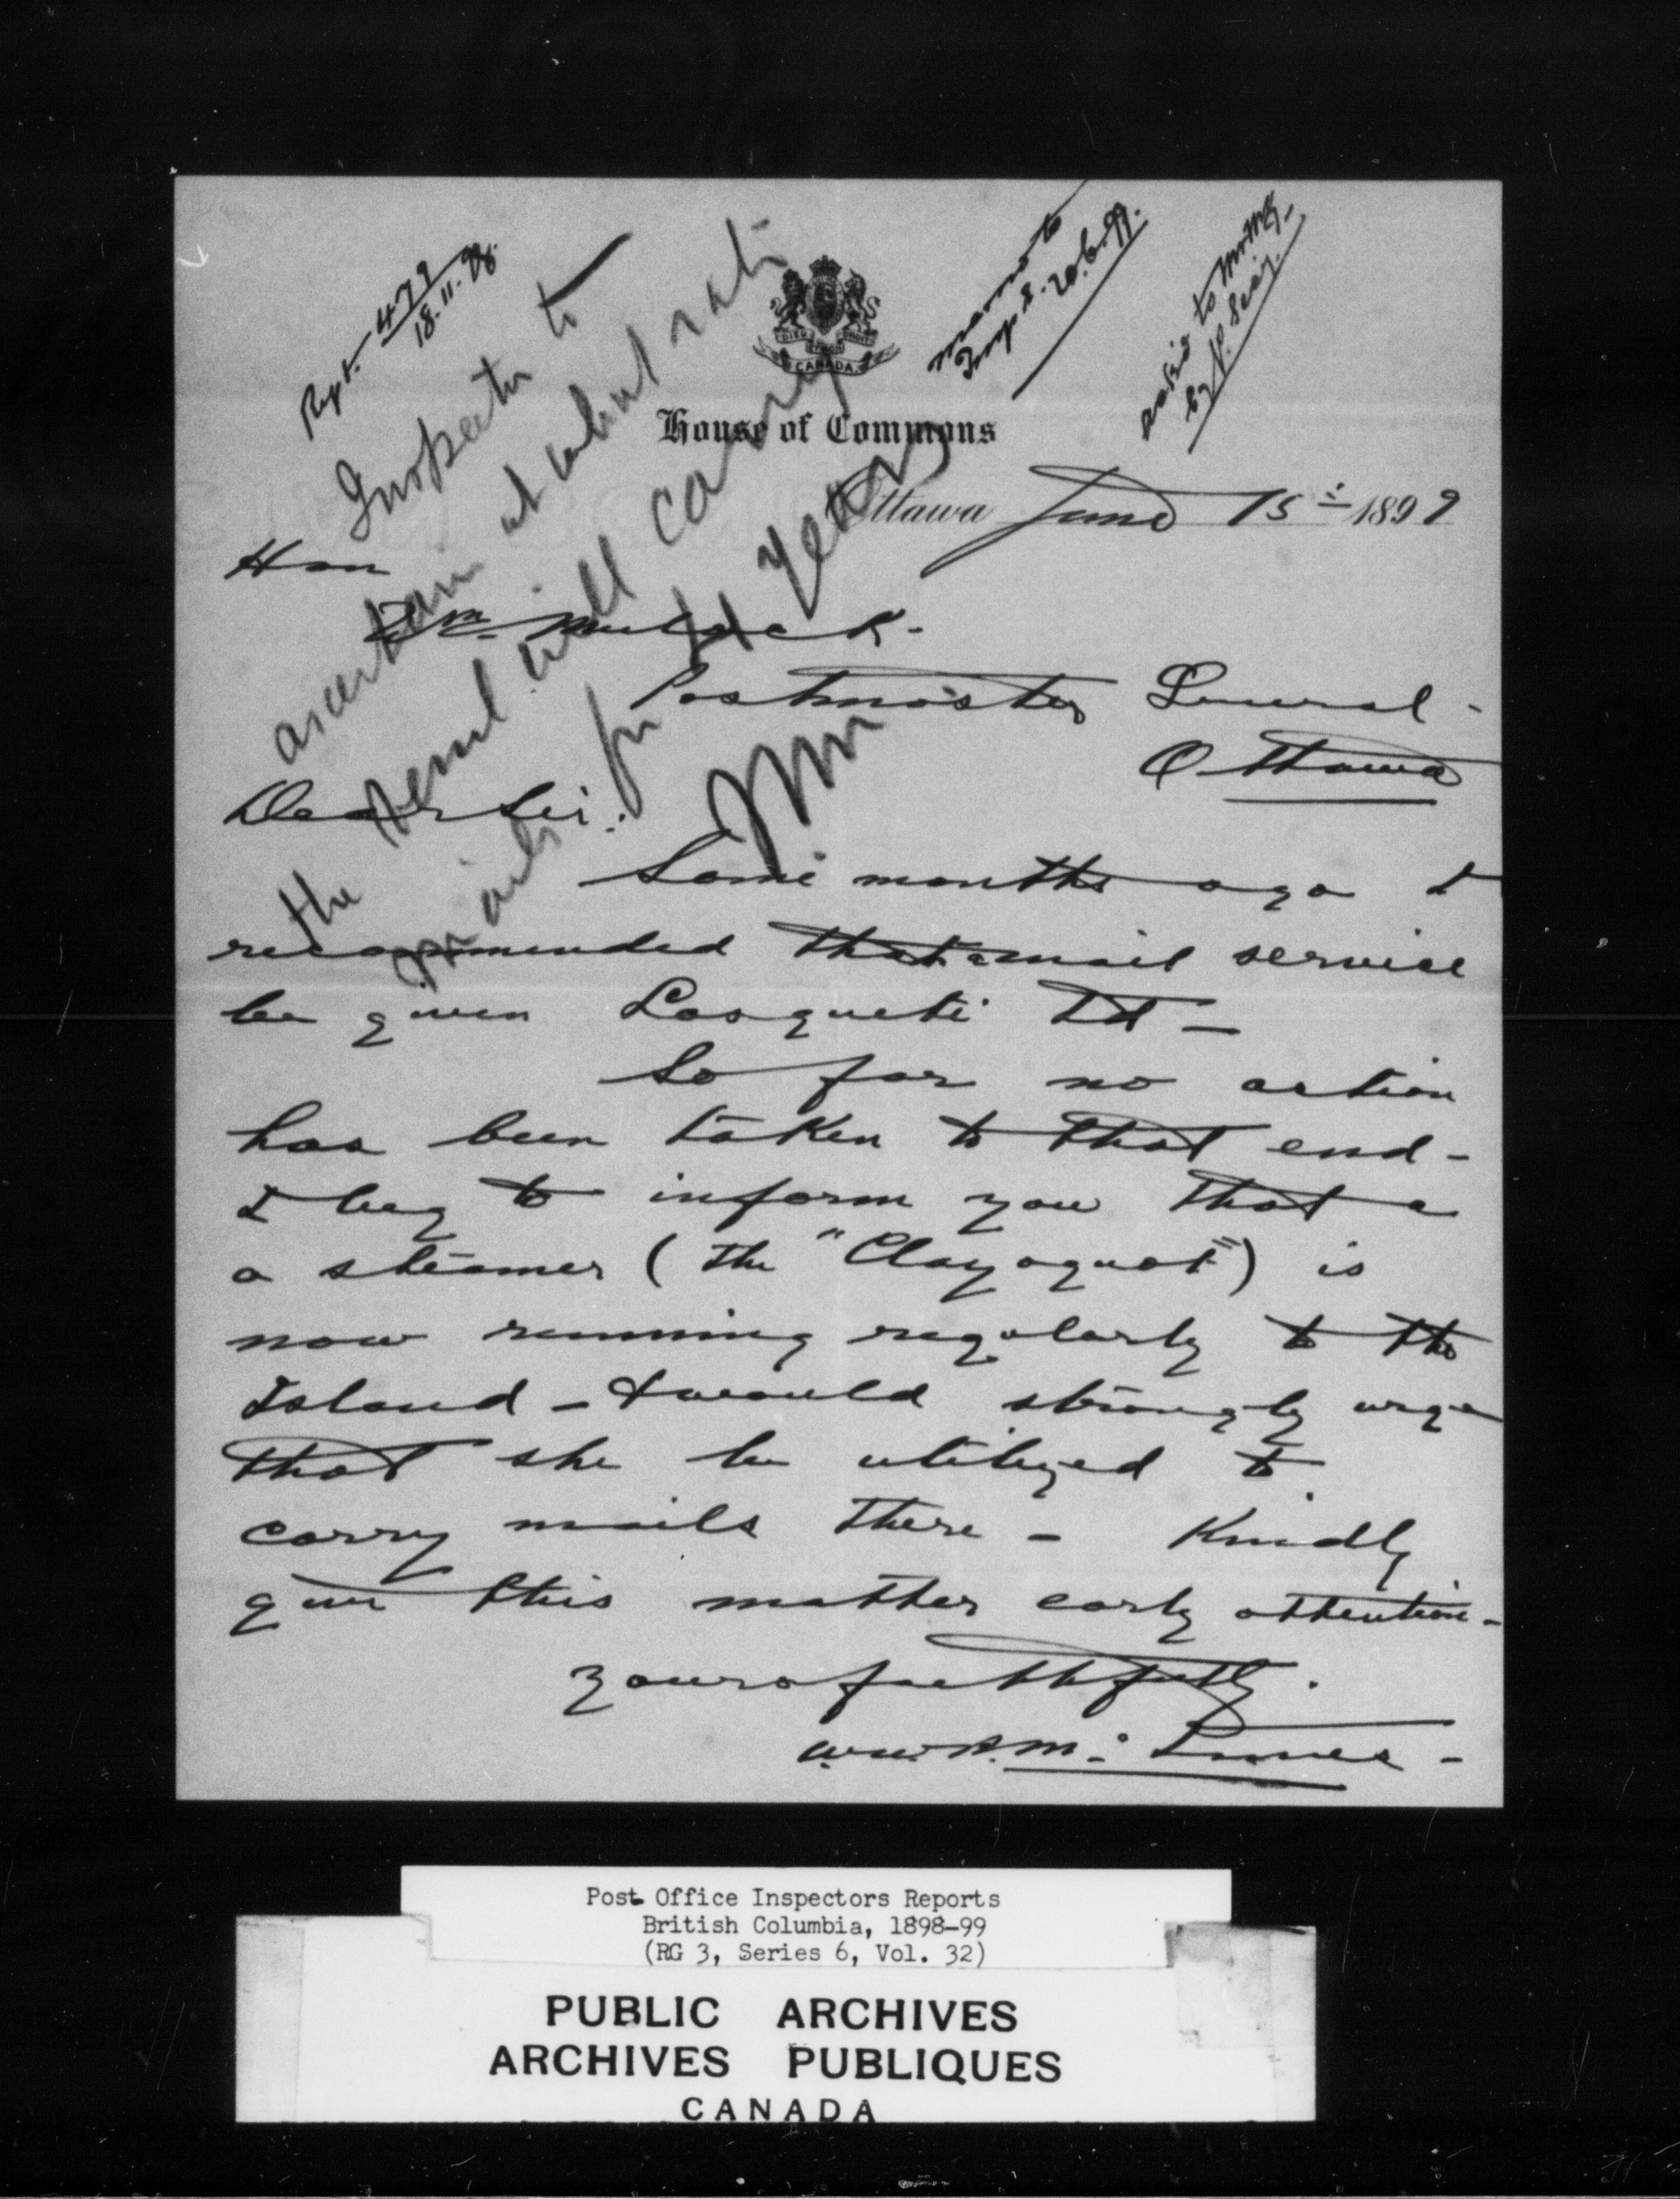 Rept. 479
18.11.98.
Inspector to
ascertain at what rate
the vessel will carry
mails for a year
WM
memo to
Insp. 8. 20.6.99.
by P. Secy.
DIEU ET MON DROIT
CANADA
House of Commons
Ottawa June 15th 1899
Hon
Wm. Mulock.
Postmaster General -
Ottawa
Dear Sir:
Some months ago I
recommended that a mail service
be given Lasqueti Id -
So far no action
has been taken to that end -
I beg to inform you that a
a steamer (the "Clayoquot") is
now running regularly to the
Island - & would strongly urge
that she be utilized to
carry mails there - Kindly
give this matter early attention -
Yours faithfully.
W.W.B. McInnes -
Post Office Inspectors Reports
British Columbia, 1898-99
(RG 3, Series 6, Vol. 32)
PUBLIC ARCHIVES
ARCHIVES PUBLIQUES
CANADA